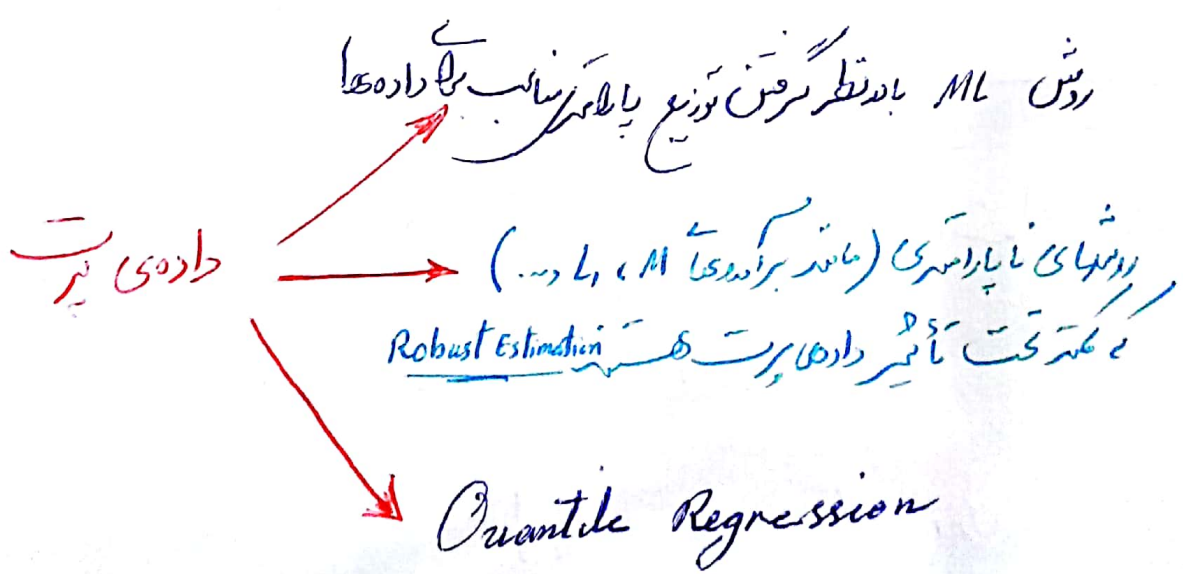 روش ML با در نظر گرفتن توزیع پارامتری مناسب برای داده‌ها
داده‌ی پرت
روشهای ناپارامتری (مانند برآوردهای M، L و ...)
که کمتر تحت تأثیر داده‌ی پرت هستند Robust Estimation
Quantile Regression